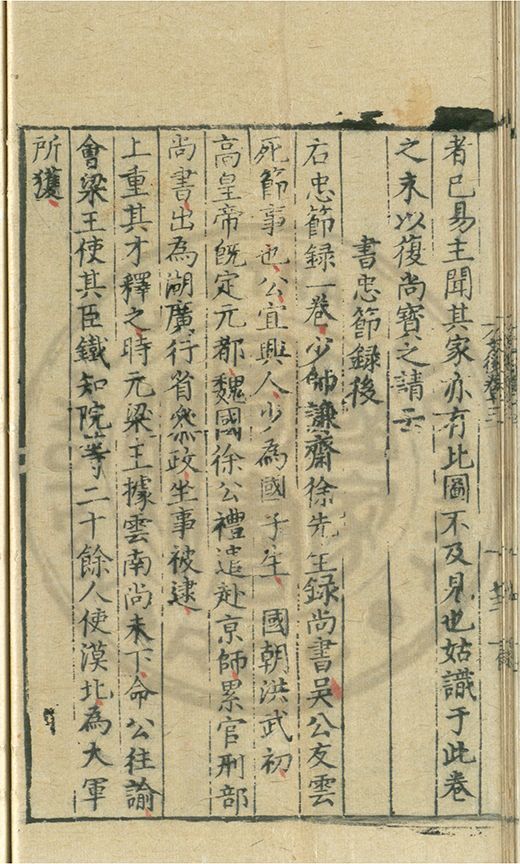 者已易主聞其家亦有比圖不及見也姑識于此卷
之末以復尚寶之請云
書忠節録後
右忠節録一卷少師謙齋徐先生録尚書吴公友雲
死節事也公宜興人少為國子生 國朝洪武初
高皇帝既定元都魏國徐公禮遣赴京師累官刑部
尚書出為湖廣行省叅政坐事被逮
上重其才釋之時元梁王據雲南尚未下命公往諭
會梁王使其臣鐵知院等二十餘人使漠北為大軍
所獲